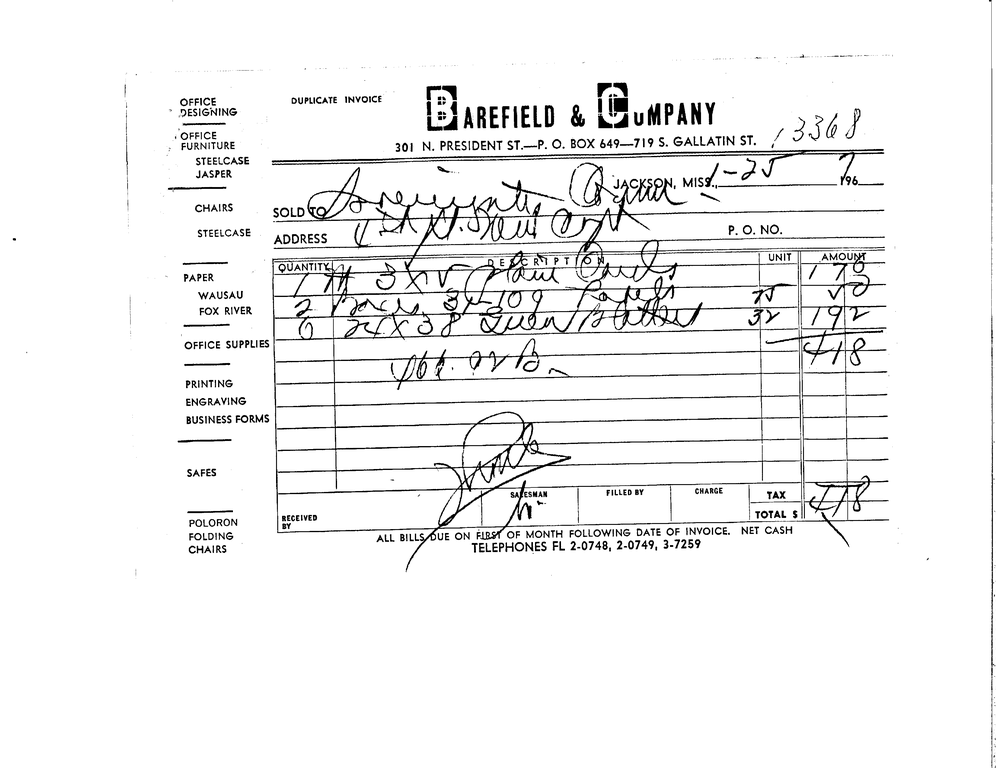 OFFICE
DESIGNING
OFFICE
FURNITURE
STEELCASE
JASPER
CHAIRS
STEELCASE
PAPER
WAUSAU
FOX RIVER
OFFICE SUPPLIES
PRINTING
ENGRAVING
BUSINESS FORMS
SAFES
POLORON
FOLDING
CHAIRS
DUPLICATE INVOICE
BAREFIELD & COMPANY
301 N. PRESIDENT ST.—P. O. BOX 649—719 S. GALLATIN ST.
13368
JACKSON, MISS., 1-25 1967
SOLD TO Sovereignty Comm
ADDRESS
P. O. NO.
QUANTITY DESCRIPTION UNIT AMOUNT
1 M 3X5 Plain Cards 1 70
2 Boxes Labels 75
6 24X38 32 1 92
4 18
RECEIVED BY
SALESMAN
FILLED BY
CHARGE
TAX
TOTAL $ 4 18
ALL BILLS DUE ON FIRST OF MONTH FOLLOWING DATE OF INVOICE. NET CASH
TELEPHONES FL 2-0748, 2-0749, 3-7259